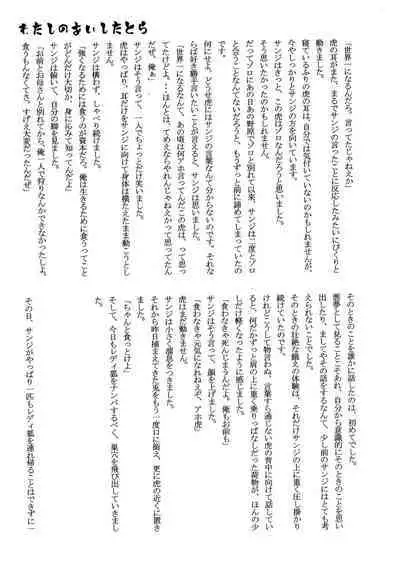 わたしのあいしたとら
「世界一になるんだろ。言ってたじゃねえか」
虎の耳が、まるでサンジの言ったことに反応したみたいにぴくりと
動きました。
寝ているふりの虎の耳は、自分では気付いていないのかもしれませんが、
今やしっかりとサンジの方を向いています。
サンジはきっと、この虎はゾロなんだろうと思いました。
そう思いたかったのかもしれません。
だってゾロにあの日あの野原でゾロと別れて以来、サンジは二度とゾロ
と会うことなんてないだろうと、もうずっと前に諦めてしまっていたの
です。
何にせよ、どうせ虎にはサンジの言葉なんて分からないのです。それな
らば好き勝手言いたいことが言えると、サンジは思いました。
「世界一になるなんて、あの頃は何アホ言ってんだこの虎は、って思っ
てたけどよ。…ほんとは、すげえじゃねえかって思ってたん
だぜ、俺あ」
サンジはそう言って、一人でちょっとだけ笑いました。
虎はやっぱり、耳だけをサンジに向けて身体は横たえたまま動こうとし
ません。
サンジは構わず、しゃべり続けました。
「強くなるためには食うのが資本だろ。俺は生きるために食うってこと
がどんだけ大切か、身に沁みて知ってんだよ」
サンジは俯いて、自分の脚を見ました。
「お前とお母さんと別れてから、俺一人で狩りなんかできなかったしよ。
食うもんなくてさ、すげえ大変だったんだぜ」
そのときのことを誰かに話したのは、初めてでした。
悪夢として見ることこそあれ、自分から意識的にそのときのことを思い
出したり、ましてやその話をするなんて、少し前のサンジにはとても考
えられないことでした。
そのときの壮絶な餓えの体験は、それだけサンジの上に重く圧し掛かり
続けていたのです。
けれどこうして物言わぬ、言葉すら通じない虎の背中に向けて話してい
ると、何だかずっと肩の上に重く乗りっぱなしだった荷物が、ほんの少
しだけ軽くなったような気がしました。
「食わなきゃ死んじまうんだよ。俺もお前も」
サンジはそう言って、顔を上げました。
「食わなきゃ元気になれねえぞ、アホ虎」
虎はまだ動きません。
サンジは小さく溜息をつきました。
それから昨日捕まえてきた兎をもう一度口に掴え、更に虎の近くに置き
ました。
「ちゃんと食っとけよ」
そして、今日もレディ狐をナンパするべく、巣穴を飛び出していきまし
た。
その日、サンジがやっぱり一匹もレディ狐を連れ帰ることはできずに一